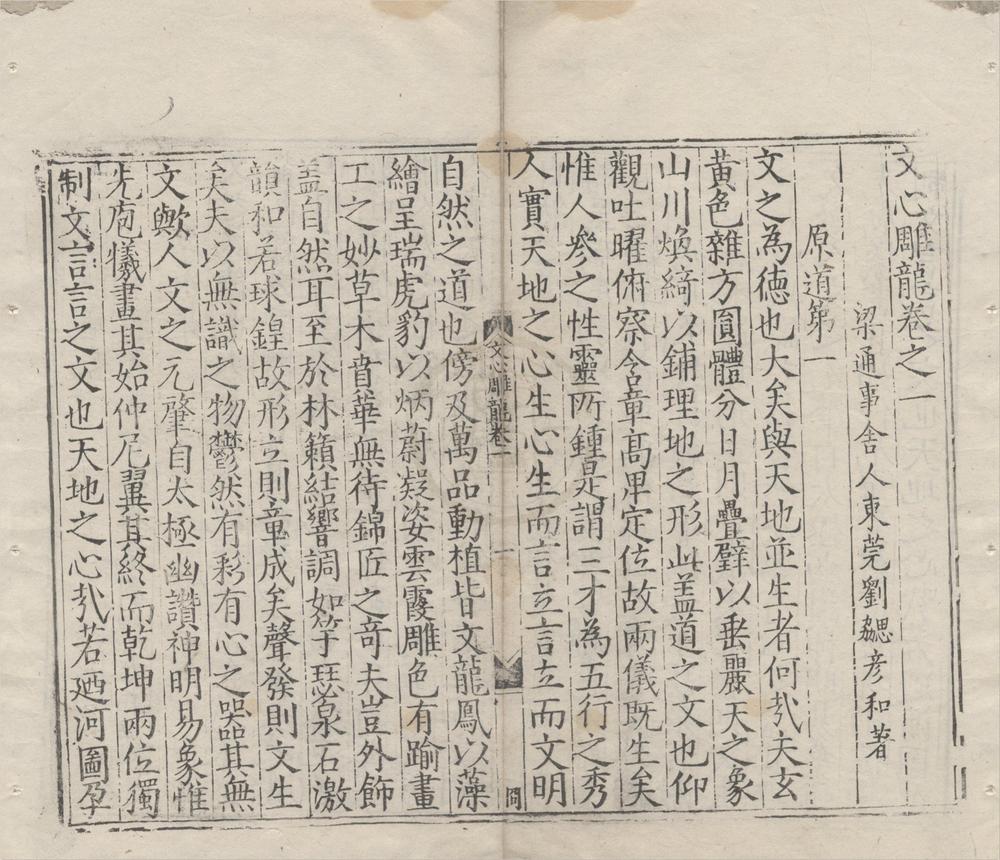 文心雕龍卷之一
梁通事舍人東莞劉勰彥和著
原道第一
文之為德也大矣與天地並生者何㢤夫玄
黃色雜方圓體分日月疊璧以垂麗天之象
山川煥綺以鋪理地之形此盖道之文也仰
觀吐曜俯察含章高卑定位故兩儀既生矣
惟人參之性靈所鍾是謂三才為五行之秀
人實天地之心生心生而言立言立而文明
文心雕龍卷一
一
自然之道也傍及萬品動植皆文龍鳳以藻
繪呈瑞虎豹以炳蔚凝姿雲霞雕色有踰畫
工之妙草木賁華無待錦匠之奇夫豈外飾
盖自然耳至於林籟結響調如竽瑟泉石激
韻和若球鍠故形立則章成矣聲發則文生
矣夫以無識之物鬱然有彩有心之器其無
文歟人文之元肇自太極幽讚神明易象惟
先庖犧畫其始仲尼翼其終而乾坤兩位獨
制文言言之文也天地之心㢤若廼河圖孕